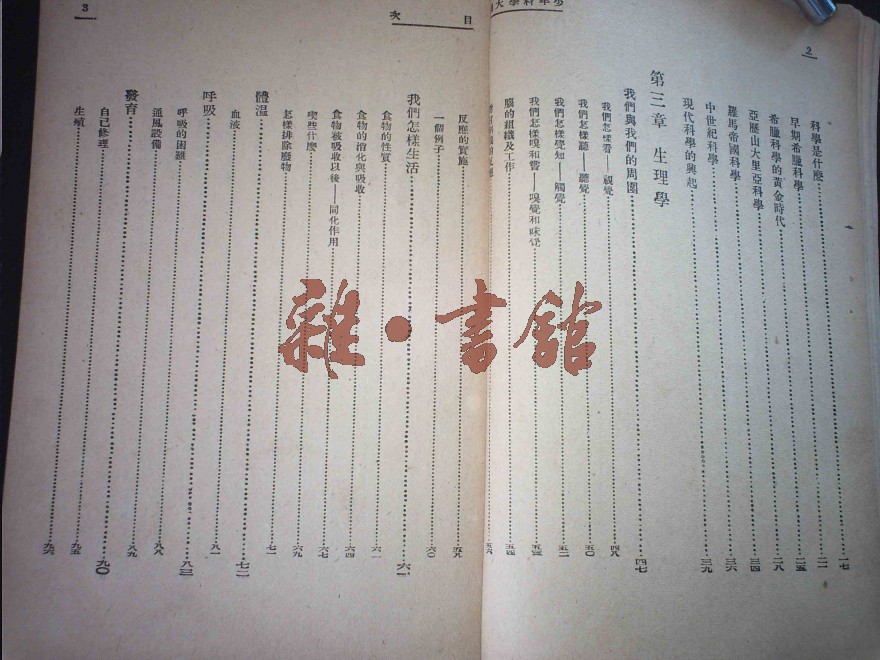 2
科學是什麼
一七
早期希臘科學
二一
希臘科學的黃金時代
二五
亞歷山大里亞科學
二八
羅馬帝國科學
三四
中世紀科學
三六
現代科學的興起
三九
第三章 生理學
我們與我們的周圍
四七
我們怎樣看——視覺
四八
我們怎樣聽——聽覺
五〇
我們怎樣覺知——觸覺
五二
我們怎樣嗅和嘗——嗅覺和味覺
五三
腦的組織及工作
五四
五六
目次
3
反應的實施
五八
一個例子
六〇
我們怎樣生活
六一
食物的性質
六一
食物的消化與吸收
六四
食物被吸收以後——同化作用
六七
喫些什麼
六九
怎樣排除廢物
七一
體溫
七二
血液
八一
呼吸
八三
呼吸的困難
八八
通風設備
八九
發育
九〇
自己修理
九五
生殖
九六
雜·書館